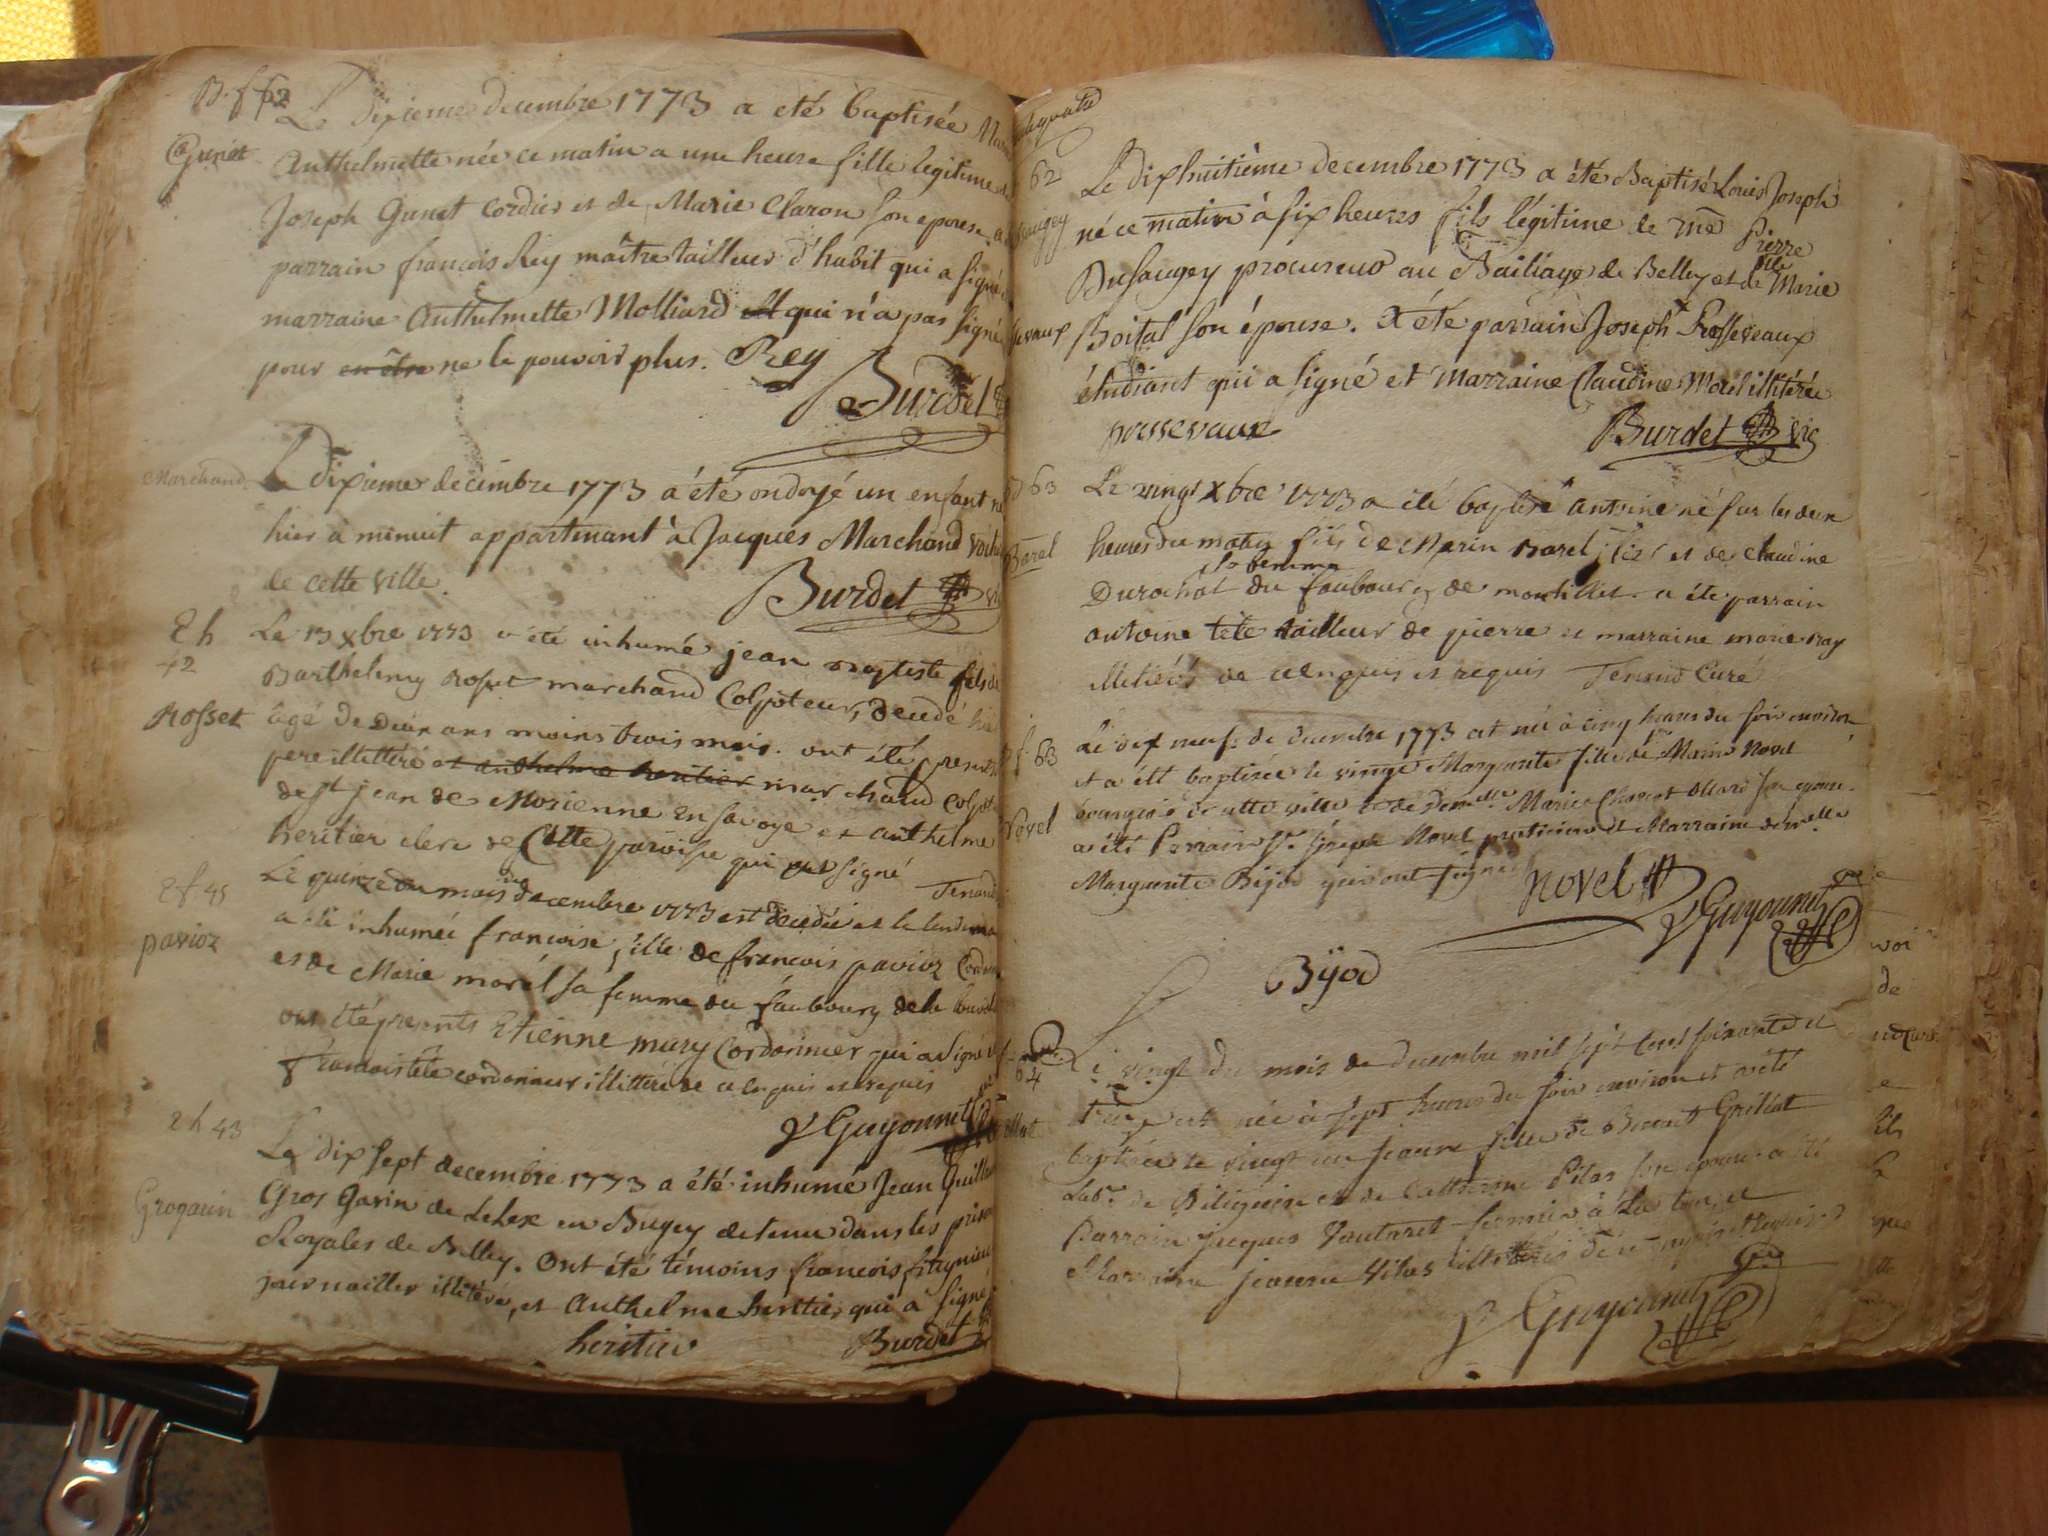 B. f 62
Le dixieme decembre 1773 a eté baptisée
Gunet
Anthelmette née ce matin a une heure fille legitime de
Joseph Gunet cordier et de Marie Claron son epouse. a
parrain francois Rey maître tailleur d'habit qui a signé
marraine Anthelmette Molliard qui n'a pas signé
pour en être ne le pouvoir plus. Rey
Burdet
Marchand
Le dixieme decembre 1773 a été ondoyé un enfant né
hier à minuit appartenant à Jacques Marchand
de cette ville.
Burdet vic
2 h
42
Le 13 xbre 1773 a été inhumé jean baptiste fils de
Barthelemy Rosset marchand Colpoteur, decedé hier
Rosset
âgé de deux ans moins trois mois. ont été presents
pere illittéré et anthelme heritier marchand Colpot
de st jean de Morienne en savoye et anthelme
heritier clerc de Cette paroisse qui ont signé
Tenand
2 f 45
Le quinze du mois de decembre 1773 est decedée et le lendemain
pavioz
a été inhumée francoise fille de francois pavioz Cordon
et de Marie morel sa femme du faubourg de la
ont été presents Etienne mury Cordonnier qui a signé et
francois tête cordonnier illittéré de ce enquis et requis
Guyonnet
2 h 43
Le dix sept decembre 1773 a été inhumé Jean Guillau
Grogarin
Gros Garin de Lelex en Bugey detenu dans les prisons
Royales de Belley. ont été témoins francois
journaillier illitéré, et Anthelme heritier qui a signé
heritier
Burdet
62
Le dixhuitième decembre 1773 a été Baptisé Louis Joseph
né ce matin à six heures fils légitime de Me Pierre
Dusaugey procureur au Bailiage de Belley et de dlle Marie
Boital son épouse. A été parrain Joseph Rosseveaux
étudiant qui a signé et Marraine Claudine Morel illitérée
Burdet vic
63
Le vingt xbre 1773 a été baptisé antoine né sur les deux
Barel
heures du matin fils de Marin Barel et de Claudine
Durochat sa femme du faubourg de montillet a été parrain
antoine tête tailleur de pierre et marraine marie ray
illitérés de ce enquis et requis Tenand Curé
f. 63
Le dix neuf de decembre 1773 est née à cinq heures du soir environ
et a été baptisée le vingt Marguerite fille de Me Marin Novel
Novel
bourgeois de cette ville et de Demelle Marie Charlot Allard son epouse.
a été Parrain Sr. Joseph Novel praticien et Marraine demelle
Marguerite Bijod qui ont signé
Novel
Guyonnet
Bijod
64
Le vingt du mois de decembre mil sept cent soixante et
treize est née à sept heures du soir environ et a été
baptisée le vingt un jeanne fille de Benoit Grillat
Labr. de Bitignin et de Catherine Pilas son epouse a été
Parrain jacques Vautaret fermier à La tour et
Marraine jeanne Vilas illitérés de ce enquis et requis
Guyonnet